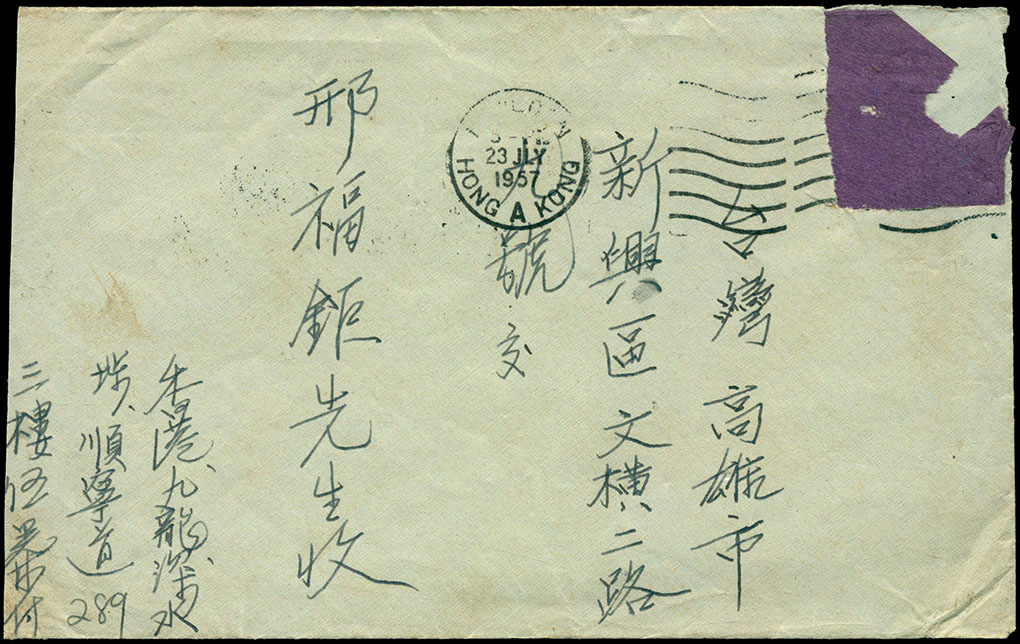 台灣 高雄市
新興區文橫二路
九號 交
邢福鉅先生收
香港九龍深水
埗、順寧道289
三樓伍
23 JLY
1957
HONG A KONG